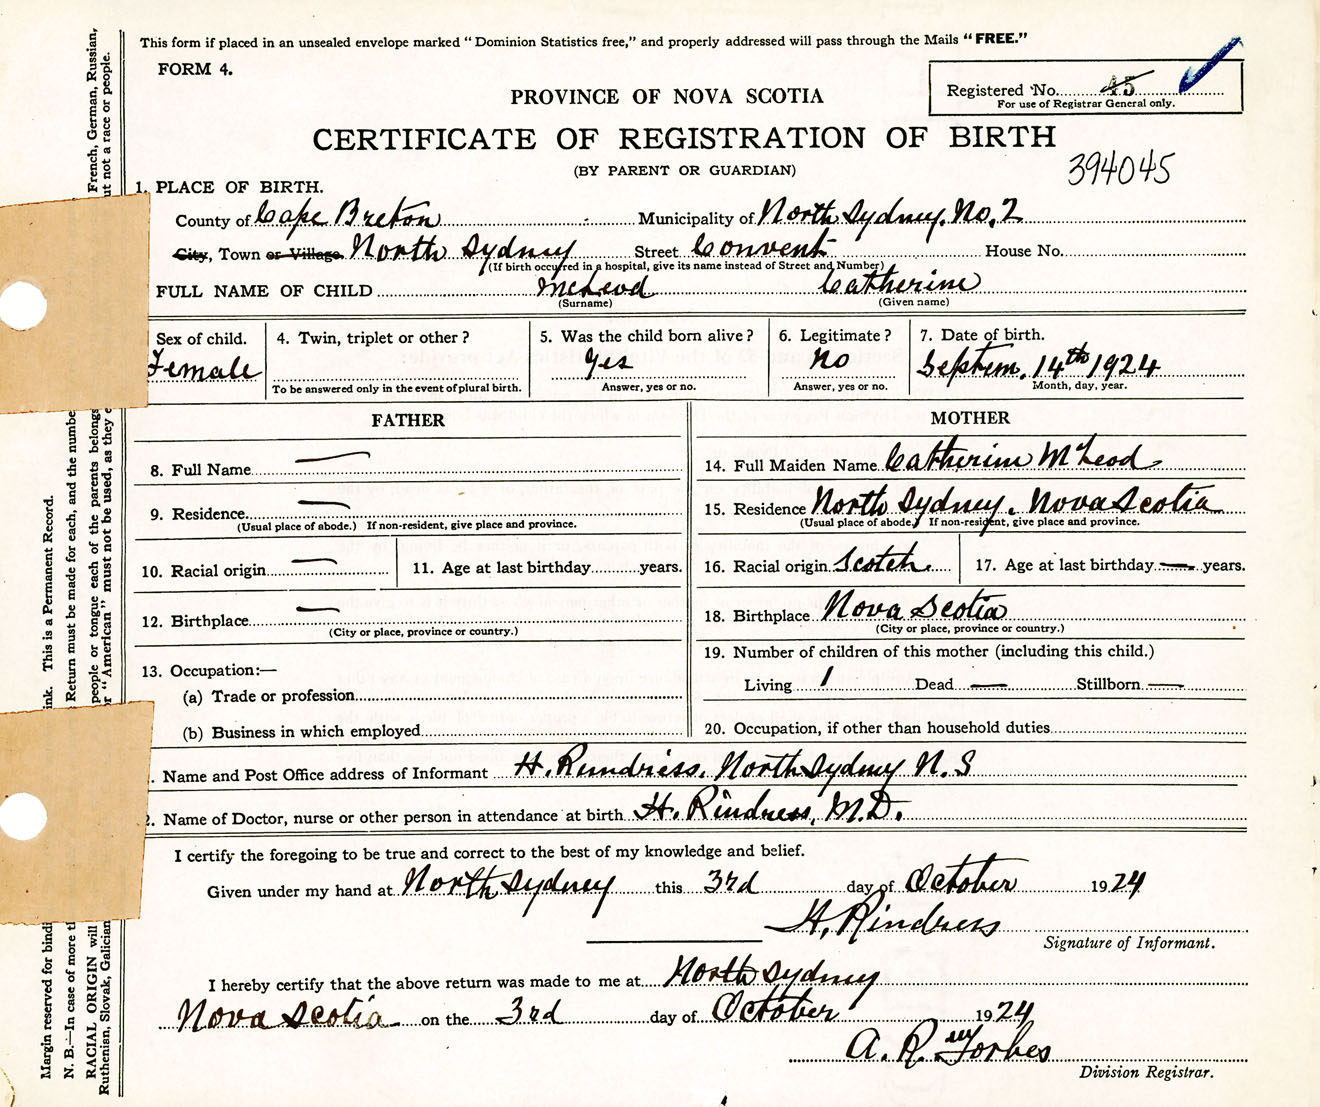 This form if placed in an unsealed envelope marked "Dominion Statistics free," and properly addressed will pass through the Mails "FREE."
FORM 4.
Registered No. 45
For use of Registrar General only.
PROVINCE OF NOVA SCOTIA
CERTIFICATE OF REGISTRATION OF BIRTH
(BY PARENT OR GUARDIAN)
394045
1. PLACE OF BIRTH.
County of Cape Breton Municipality of North Sydney. No. 2
City, Town or Village. North Sydney Street Convent House No.
(If birth occurred in a hospital, give its name instead of Street and Number)
FULL NAME OF CHILD McLeod Catherine
(Surname) (Given name)
Sex of child. 4. Twin, triplet or other? 5. Was the child born alive? 6. Legitimate? 7. Date of birth.
Female Yes No Septem. 14th 1924
To be answered only in the event of plural birth. Answer, yes or no. Answer, yes or no. Month, day, year.
FATHER
8. Full Name —
9. Residence. —
(Usual place of abode.) If non-resident, give place and province.
10. Racial origin — 11. Age at last birthday years.
12. Birthplace —
(City or place, province or country.)
13. Occupation:—
(a) Trade or profession
(b) Business in which employed
MOTHER
14. Full Maiden Name Catherine McLeod
15. Residence North Sydney. Nova Scotia
(Usual place of abode.) If non-resident, give place and province.
16. Racial origin Scotch. 17. Age at last birthday — years.
18. Birthplace Nova Scotia
(City or place, province or country.)
19. Number of children of this mother (including this child.)
Living 1 Dead — Stillborn —
20. Occupation, if other than household duties
. Name and Post Office address of Informant H. Rindress. North Sydney N. S
2. Name of Doctor, nurse or other person in attendance at birth H. Rindress, M.D.
I certify the foregoing to be true and correct to the best of my knowledge and belief.
Given under my hand at North Sydney this 3rd day of October 1924
H. Rindress
Signature of Informant.
I hereby certify that the above return was made to me at North Sydney
Nova Scotia on the 3rd day of October 1924
A. R. Forbes
Division Registrar.
Margin reserved for bindi ink. This is a Permanent Record.
N. B.—In case of more t Return must be made for each, and the numbe
RACIAL ORIGIN will people or tongue each of the parents belongs French, German, Russian,
Ruthenian, Slovak, Galician or "American" must not be used, as they e ut not a race or people.